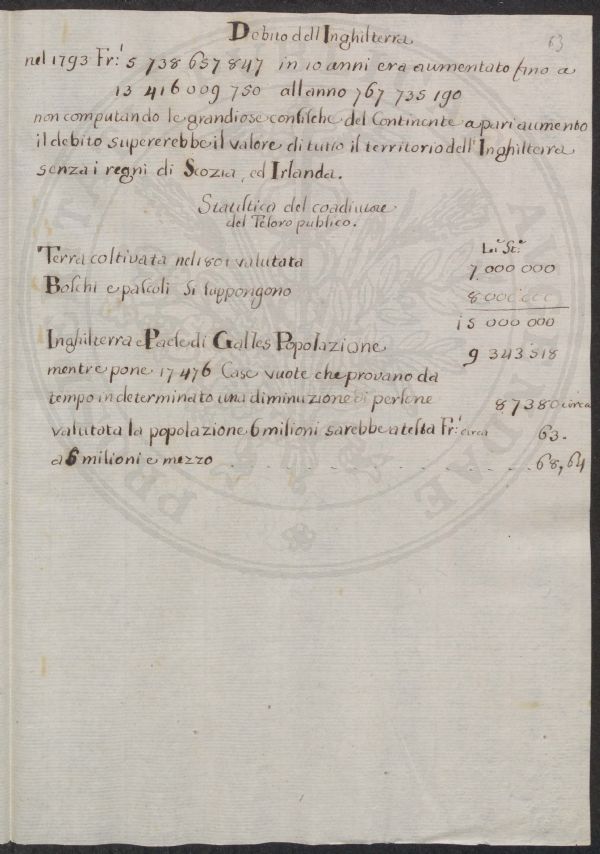 63
Debito dell Inghilterra
nel 1793 Fr.i 5 738 657 847 in 10 anni era aumentato fino a
13 416 009 750 all anno 767 735 190
non computando le grandiose confische del Continente a pari aumento
il debito supererebbe il valore di tutto il territorio dell'Inghilterra
senza i regni di Scozia, ed Irlanda.
Statistica del coadiutore
del Tesoro publico.
Li.e St.e
Terra coltivata nel 1801 valutata 7 000 000
Boschi e pascoli si suppongono 8 000 000
15 000 000
Inghilterra e Paese di Galles Popolazione 9 343 518
mentre pone 17 476 Case vuote che provano da
tempo indeterminato una diminuzione di persone 87380 circa
valutata la popolazione 6 milioni sarebbe a testa Fr.i circa 63.
a 6 milioni e mezzo . . . . . . . . . . 68,64